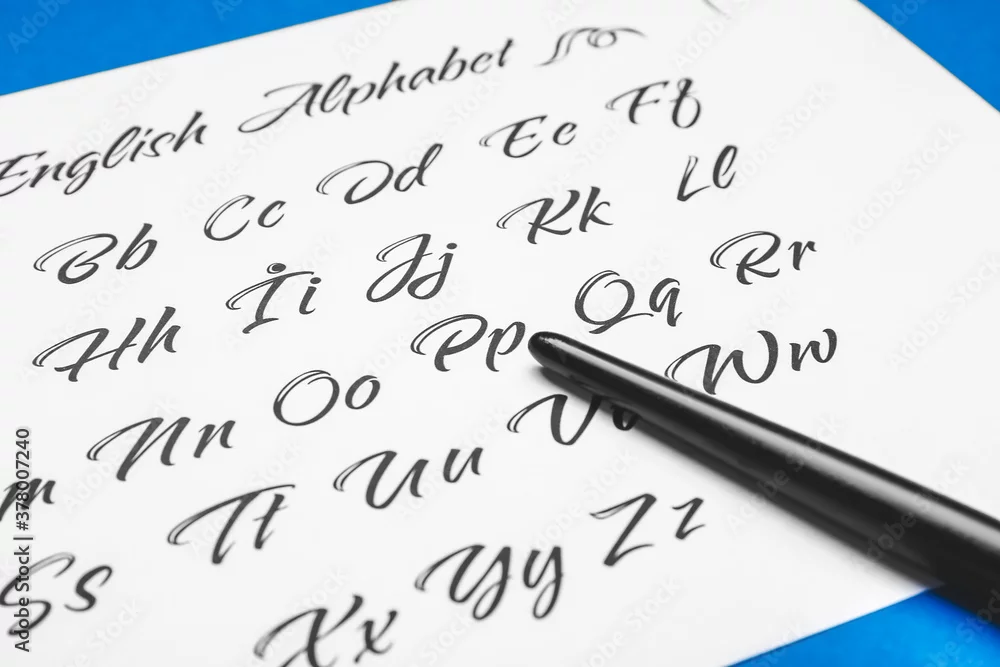 English Alphabet
Bb Cc Dd Ee Ff
Hh İi Jj Kk Ll
Nn Oo Pp Qq Rr
Ss Tt Uu Vv Ww
Xx Yy Zz
Adobe Stock | #378007240